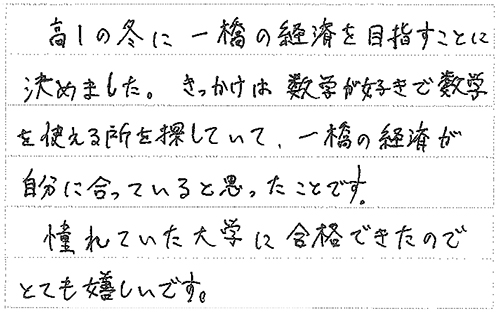 高1の冬に一橋の経済を目指すことに
決めました。きっかけは数学が好きで数学
を使える所を探していて、一橋の経済が
自分に合っていると思ったことです。
憧れていた大学に合格できたので
とても嬉しいです。